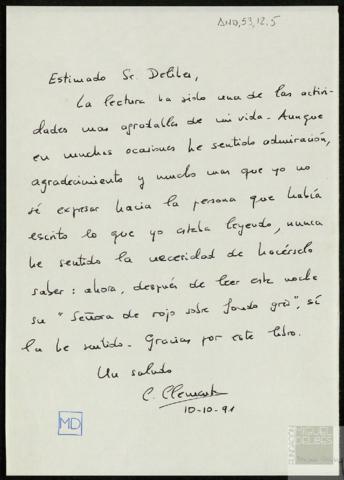 AMD,53,12.5
Estimado Sr. Delibes,
La lectura ha sido una de las activi-
dades mas agradables de mi vida. Aunque
en muchas ocasiones he sentido admiración,
agradecimiento y mucho mas que yo no
sé expresar hacia la persona que había
escrito lo que yo estaba leyendo, nunca
he sentido la necesidad de hacérselo
saber: ahora, después de leer esta noche
su "Señora de rojo sobre fondo gris", sí
la he sentido. Gracias por este libro.
Un saludo
C. Clemente
10-10-91
MD
FUNDACIÓN
MIGUEL
DELIBES